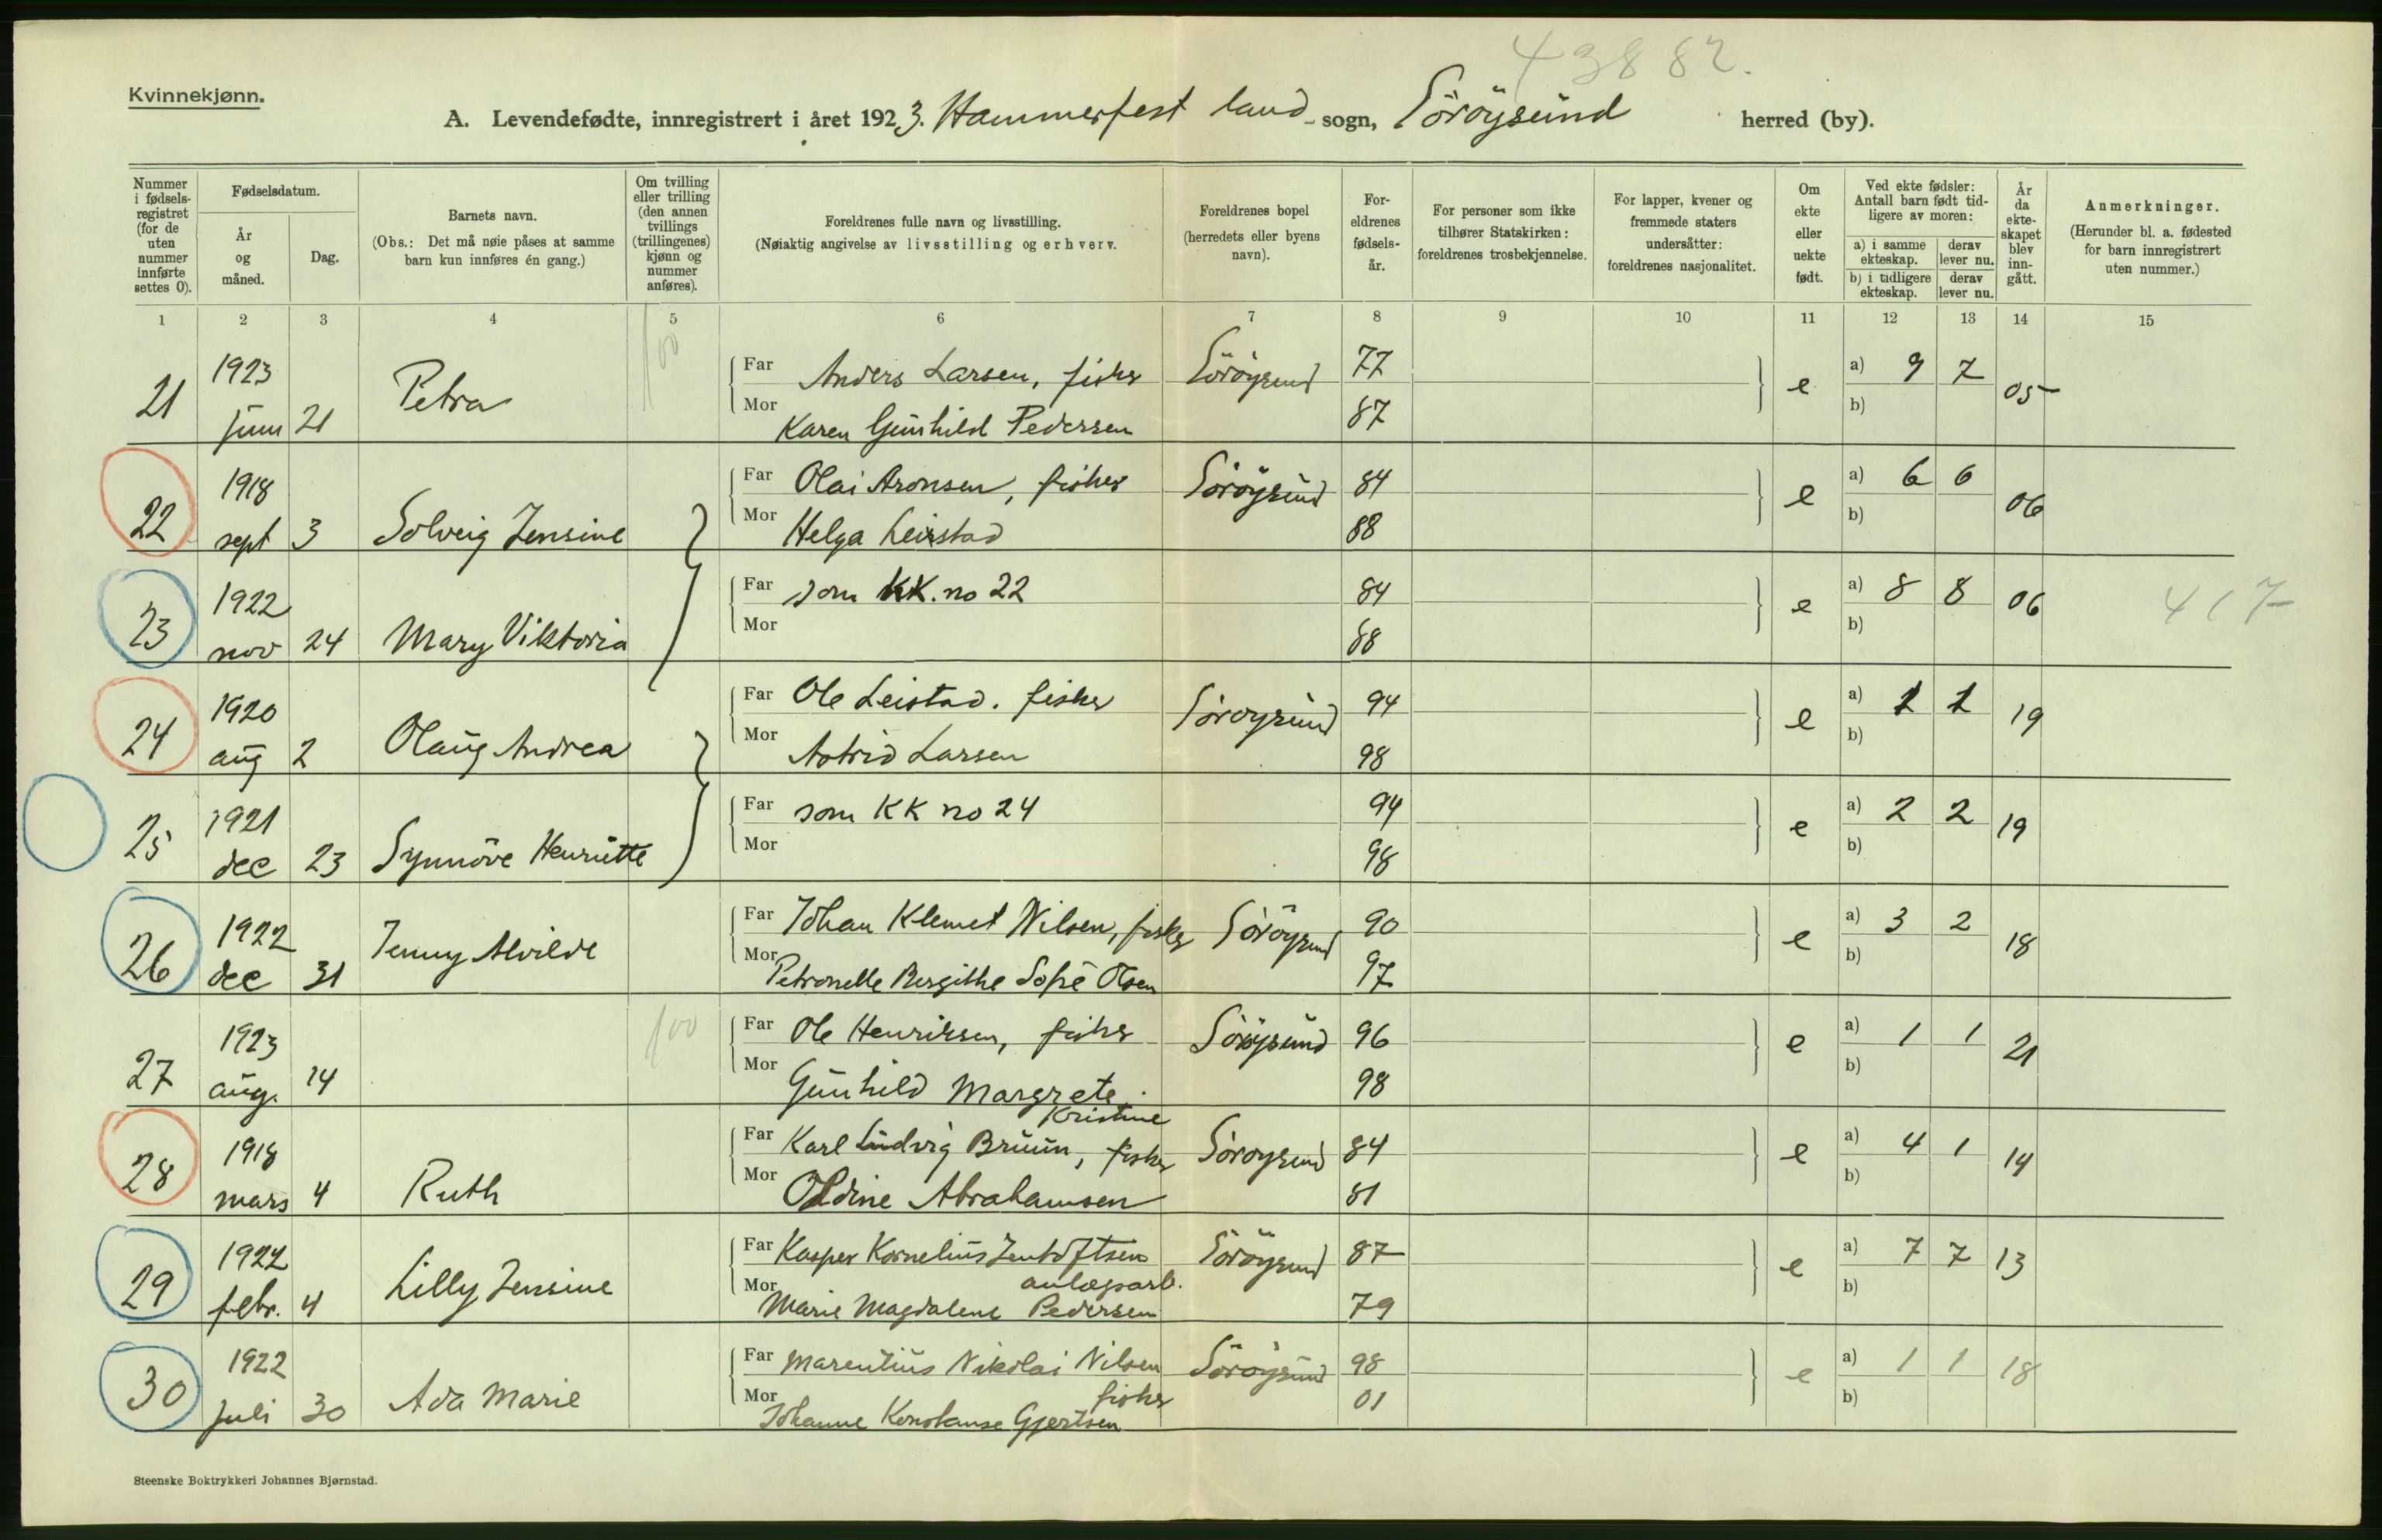 43882.
Kvinnekjønn.
A. Levendefødte, innregistrert i året 1923. Hammerfest land sogn, Söröysund herred (by).
Nummer i fødselsregistret (for de uten nummer innførte settes 0).
Fødselsdatum.
År og måned.
Dag.
Barnets navn.
(Obs.: Det må nøie påses at samme barn kun innføres én gang.)
Om tvilling eller trilling (den annen tvillings (trillingenes) kjønn og nummer anføres).
Foreldrenes fulle navn og livsstilling.
(Nøiaktig angivelse av livsstilling og erhverv.
Foreldrenes bopel (herredets eller byens navn).
Foreldrenes fødselsår.
For personer som ikke tilhører Statskirken: foreldrenes trosbekjennelse.
For lapper, kvener og fremmede staters undersåtter: foreldrenes nasjonalitet.
Om ekte eller uekte født.
Ved ekte fødsler: Antall barn født tidligere av moren:
a) i samme ekteskap.
derav lever nu.
b) i tidligere ekteskap.
derav lever nu.
År da ekteskapet blev inngått.
Anmerkninger.
(Herunder bl. a. fødested for barn innregistrert uten nummer.)
1 2 3 4 5 6 7 8 9 10 11 12 13 14 15
21 1923 juni 21 Petra 100
Far Anders Larsen, fisker Söröysund 77 e a) 9 7 05
Mor Karen Gunhild Pedersen 87 b)
22 1918 sept 3 Solveig Jensine
Far Olai Aronsen, fisker Söröysund 84 e a) 6 6 06
Mor Helga Leirstad 88 b)
23 1922 nov 24 Mary Viktoria
Far som KK. no 22 84 e a) 8 8 06
Mor 88 b)
417
24 1920 aug 2 Olaug Andrea
Far Ole Leistad. fisker Söröysund 94 e a) 1 1 19
Mor Astrid Larsen 98 b)
25 1921 dec 23 Synnöve Henriette
Far som KK no 24 94 e a) 2 2 19
Mor 98 b)
26 1922 dec 31 Jenny Alvilde
Far Johan Klemet Nilsen, fisker Söröysund 90 e a) 3 2 18
Mor Petronelle Bergithe Sofie Olsen 97 b)
27 1923 aug. 14 100
Far Ole Henriksen, fisker Söröysund 96 e a) 1 1 21
Mor Gunhild Margrete Kristine 98 b)
28 1918 mars 4 Ruth
Far Karl Ludvig Bruun, fisker Söröysund 84 e a) 4 1 14
Mor Oldine Abrahamsen 81 b)
29 1922 febr. 4 Lilly Jensine
Far Kasper Kornelius Jentoftsen anlægsarb. Söröysund 87 e a) 7 7 13
Mor Marie Magdalene Pedersen 79 b)
30 1922 juli 30 Ada Marie
Far Marentius Nikolai Nilsen fisker Söröysund 98 e a) 1 1 18
Mor Johanne Konstanse Gjertsen 01 b)
Steenske Boktrykkeri Johannes Bjørnstad.